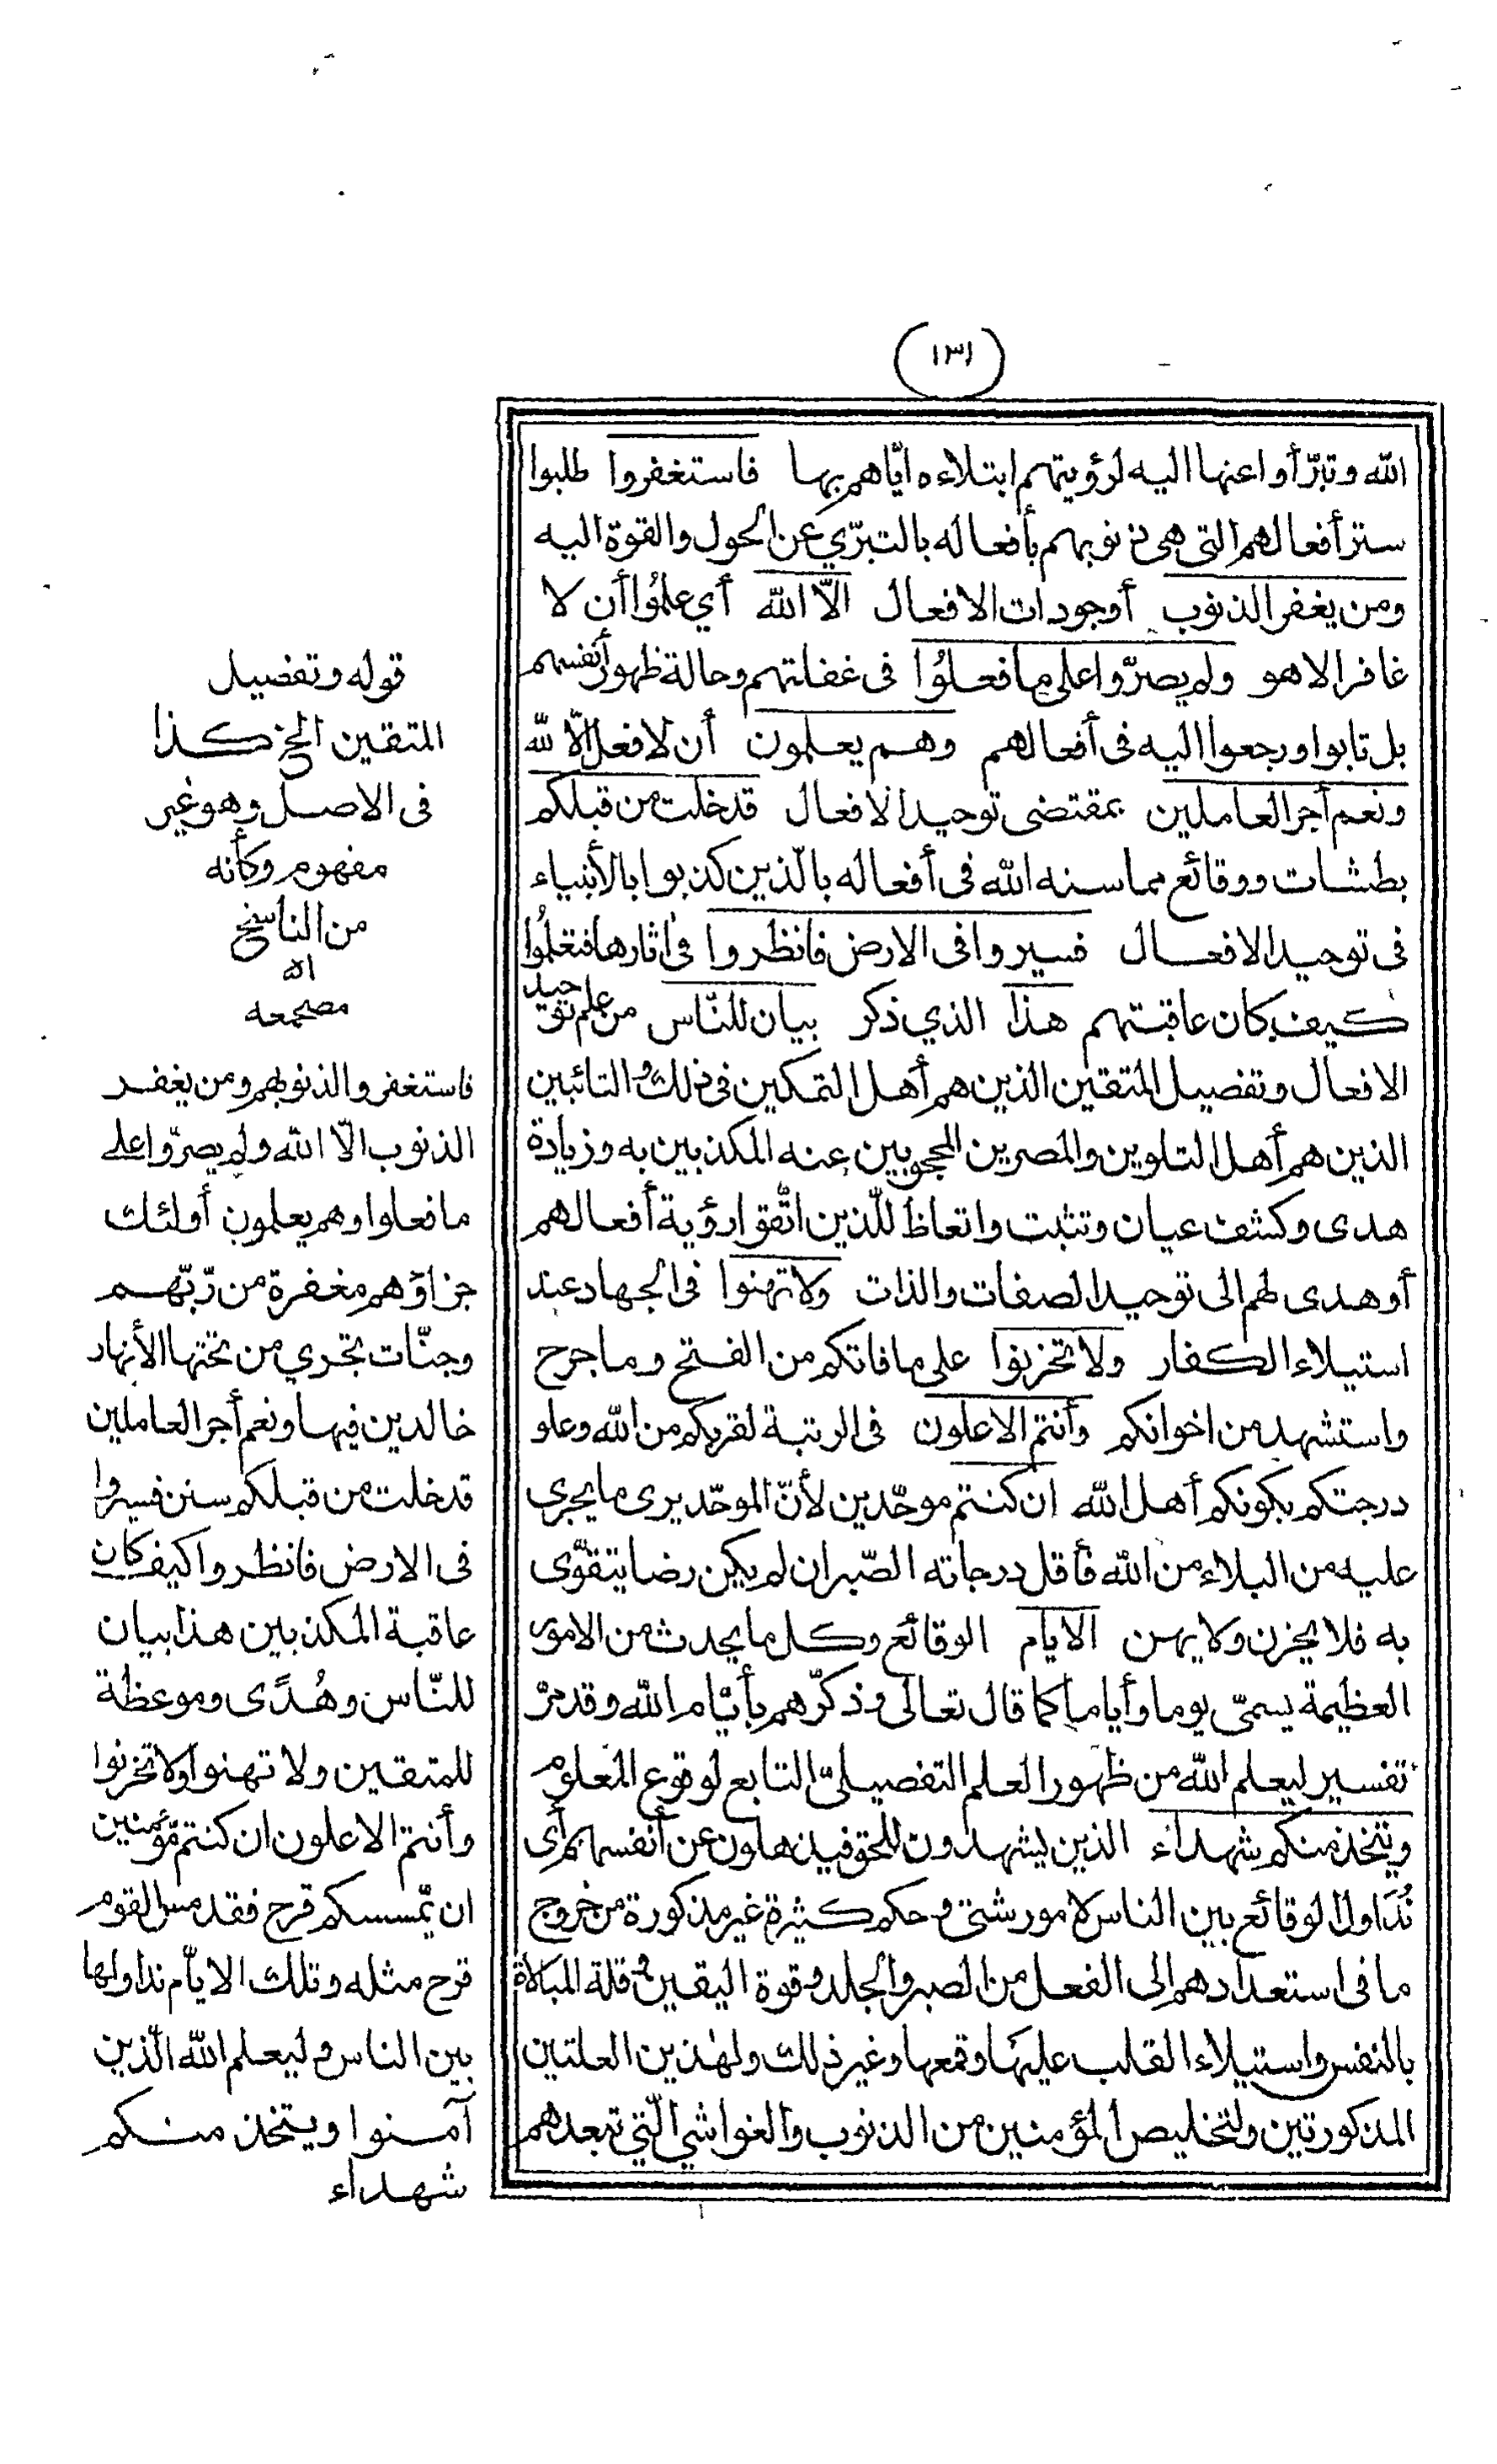 (١٣١)
الله وتبرّأوا عنها اليه لرؤيتهم ابتلاءه ايّاهم بها فاستغفروا طلبوا
ستر أفعالهم التى هى ذنوبهم بأفعاله بالتبرّي عن الحول والقوة اليه
ومن يغفر الذنوب أوجودات الافعال الّا الله أي علمُوا أن لا
غافر الا هو ولم يصرّوا على ما فعلوُا فى غفلتهم وحالة ظهور أنفسهم
بل تابوا ورجعوا اليه فى أفعالهم وهم يعلمون أن لا فعل الّا لله
ونعم أجر العاملين بمقتضى توحيد الافعال قد خلت من قبلكم
بطشات ووقائع مما سنه الله فى أفعاله بالّذين كذبوا بالأنبياء
فى توحيد الافعال فسيروا فى الارض فانظروا فى اٰثارها فتعلمُوا
كيف كان عاقبتهم هذا الذي ذكر بيان للنّاس من علم توحيد
الافعال وتفصيل المتقين الذين هم أهل التمكين فى ذلك والتائبين
الذين هم أهل التلوين والمصرين المحجوبين عنه المكذبين به وزيادة
هدى وكشف عيان وتثبت واتعاظ للّذين اتّقوا رؤية أفعالهم
أوهدى لهم الى توحيد الصفات والذات ولا تهنوا فى الجهاد عند
استيلاء الكفار ولا تحزنوا على ما فاتكم من الفتح وما جرح
واستشهد من اخوانكم وأنتم الاعلون فى الرتبة لقربكم من الله وعلو
درجتكم بكونكم أهل الله ان كنتم موحّدين لأنّ الموحّد يرى ما يجرى
عليه من البلاء من الله فأقل درجاته الصّبر ان لم يكن رضا يتقوّى
به فلا يحزن ولا يهن الايام الوقائع وكل ما يحدث من الامور
العظيمة يسمّى يوما وأياما كما قال تعالى وذكّرهم بأيّام الله وقد مرّ
تفسير ليعلم الله من ظهور العلم التفصيلىّ التابع لوقوع المعلوم
ويتخذ منكم شهداء الذين يشهدون للحق فيذهلون عن أنفسهم أى
نُدَاول الوقائع بين الناس لامور شتى وحكم كثيرة غير مذكورة من خروج
ما فى استعدادهم الى الفعل من الصبر والجلد وقوة اليقين وقلة المبالاة
بالنفس واستيلاء القلب عليها وقمعها وغير ذلك ولهٰذين العلتين
المذكورتين ولتخليص المؤمنين من الذنوب والغواشي الّتي تبعدهم
قوله وتفصيل
المتقين الخ كذا
فى الاصل وهو غير
مفهوم وكأنه
من الناسخ
اه
مصححه
فاستغفروا لذنوبهم ومن يغفر
الذنوب الّا الله ولم يصرّوا على
ما فعلوا وهم يعلمون أولئك
جزاؤهم مغفرة من رّبّهم
وجنّات تجري من تحتها الأنهار
خالدين فيها ونعم أجر العاملين
قد خلت من قبلكم سنن فسيروا
فى الارض فانظروا كيف كان
عاقبة المكذبين هذا بيان
للنّاس وهُدًى وموعظة
للمتقين ولا تهنوا ولا تحزنوا
وأنتم الاعلون ان كنتم مّؤمنين
ان يّمسسكم قرح فقد مس القوم
قرح مثله وتلك الايّام نداولها
بين الناس وليعلم الله الّذين
آمنوا ويتخذ منكم
شهدآء